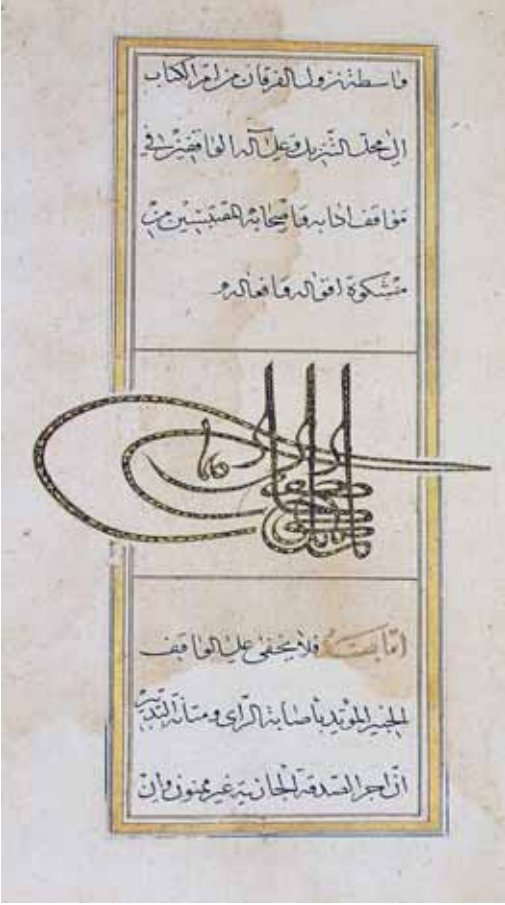 واسطة نزول الفرقان من ام الكتاب
الى محل التنزيل وعلى آله الواقفين في
مواقف ادابه واصحابه المقتبسين من
مشكوة اقواله وافعاله
اما بعد فلا يخفى على الواقف
الخبير المؤيد باصابة الراى ومتانة التدبير
ان اجر الصدقة الجارية غير ممنون وان